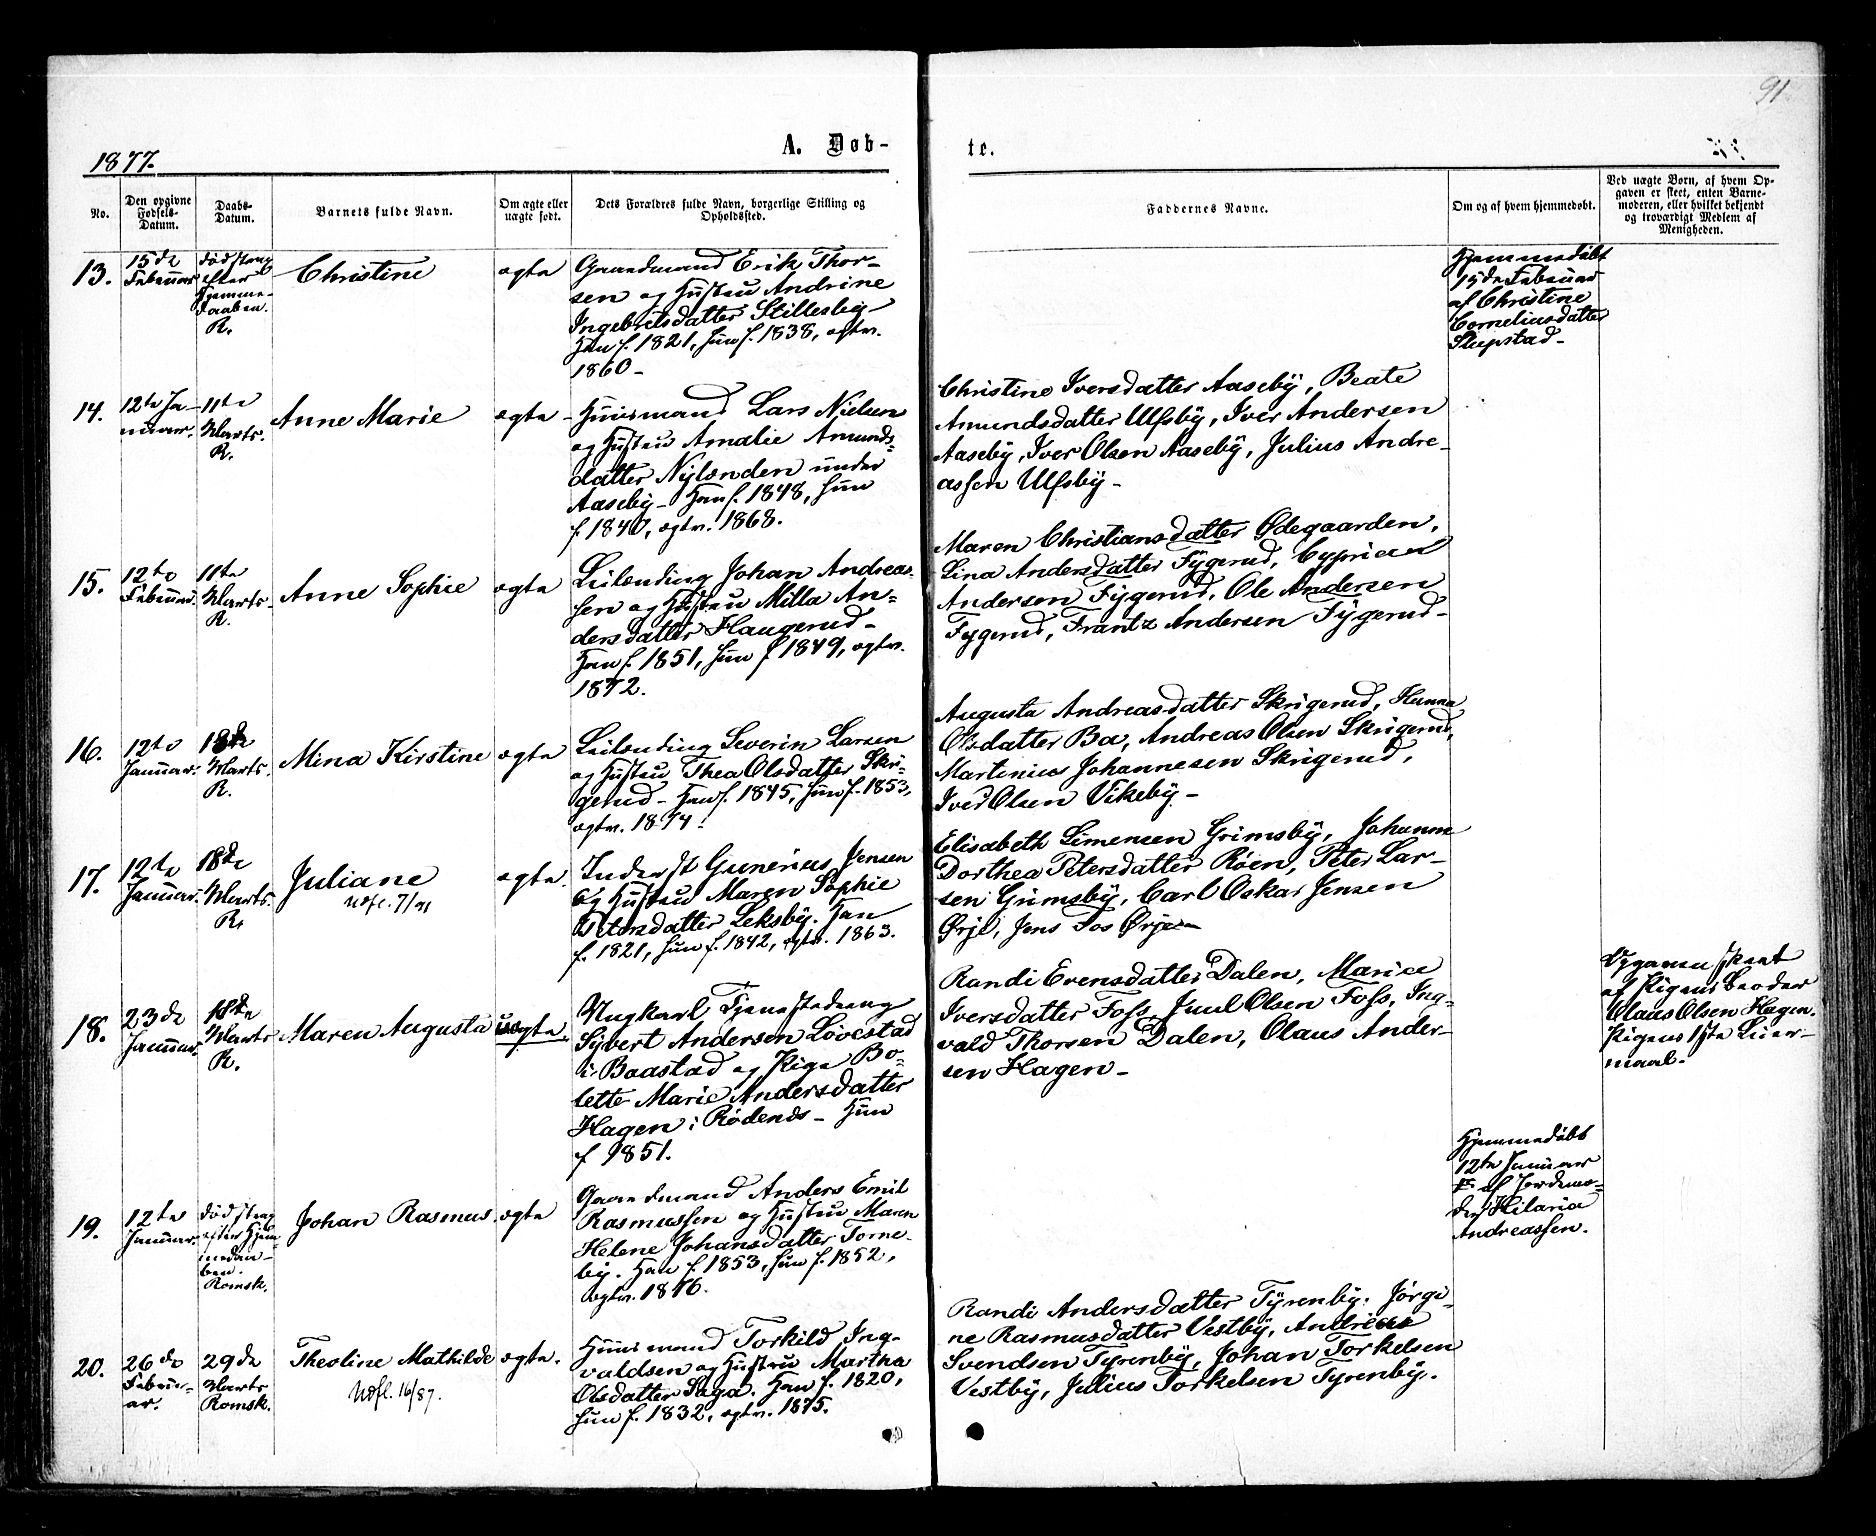 91
A. Døb-
te.
1877.
No.
Den opgivne
Fødsels-
Datum.
Daabs-
Datum.
Barnets fulde Navn.
Om ægte eller
uægte født.
Dets Forældres fulde Navn, borgerlige Stilling og
Opholdssted.
Faddernes Navne.
Om og af hvem hjemmedøbt.
Ved uægte Børn, af hvem Op-
gaven er skeet, enten Barne-
moderen, eller hvilket bekjendt
og troværdigt Medlem af
Menigheden.
13.
15de
Februar
død strax
efter
Hjemme-
daaben.
R.
Christine
ægte
Gaardmand Erik Thor-
sen og Hustru Andrine
Ingebretsdatter Stillesby-
Han f. 1821, Hun f. 1838, ægtv.
1860-
Hjemmedøbt
15de Februar
af Christine
Corneliusdatter
Slupstad-
14.
12te Ja-
nuar.
11te
Marts.
R.
Anne Marie
ægte
Huusmand Lars Nielsen
og Hustru Amalie Amunds-
datter Nylænden under
Aaseby- Han f. 1848, Hun
f. 1840, ægtv. 1868.
Christine Iversdatter Aaseby, Beate
Amundsdatter Ulfsby, Iver Andersen
Aaseby, Iver Olsen Aaseby, Julius Andre-
assen Ulfsby-
15.
12te
Februar.
11te
Marts-
R.
Anne Sophie
ægte
Leilending Johan Andreas-
sen og Hustru Milla An-
dersdatter Haugerud-
Han f. 1851, Hun f. 1849, ægtv.
1872.
Maren Christiansdatter Ødegaarden,
Lina Andersdatter Fygerud, Cyprian
Andersen Fygerud, Ole Andersen
Fygerud, Frantz Andersen Fygerud-
16.
12te
Januar.
18de
Marts.
R.
Mina Kirstine
ægte
Leilending Severin Larsen
og Hustru Thea Olsdatter Skri-
gerud- Han f. 1845, Hun f. 1853,
ægtv. 1874.
Augusta Andreasdatter Skrigerud, Hanna
Olsdatter Bø, Andreas Olsen Skrigerud,
Martinius Johannesen Skrigerud,
Iver Olsen Vikeby-
17.
12te
Januar.
18de
Marts.
R.
Juliane
Udfl. 7/91
ægte.
Inderst Gunerius Jensen
og Hustru Maren Sophie
Petersdatter Leksby. Han
f. 1821, Hun f. 1842, ægtv. 1863.
Elisabeth Simensen Grimsby, Johanne
Dorthea Petersdatter Røen, Peter Lar-
sen Grimsby, Carl Oskar Jensen
Ørje, Jens Fos Ørje-
18.
23de
Januar.
18de
Marts
R.
Maren Augusta
uægte.
Ungkarl Tjenestedreng
Sybert Andersen Løvestad
i Baastad og Pige Bo-
lette Marie Andersdatter
Hagen i Rødenæs- Hun
f. 1851.
Randi Evensdatter Dalen, Marice
Iversdatter Foss, Juul Olsen Foss, Ing-
vald Thorsen Dalen, Olaus Ander-
sen Hagen-
Opgaven skeet
af Pigens Broder
Olaus Olsen Hagen.
Pigens 1ste Leier-
maal.
19.
12te
Januar.
død strax
efter Hjem-
medaa-
ben.
Romsk.
Johan Rasmus.
ægte
Gaardmand Anders Emil
Rasmussen og Hustru Maren
Helene Johansdatter Torne-
by. Han f. 1853, Hun f. 1852,
ægtv. 1876.
Hjemmedøbt
12te Januar
af Jordemo-
der Hilaria
Andreassen.
20.
26de
Febru-
ar.
29de
Marts
Romsk.
Theoline Mathilde
Udfl. 16/87.
ægte.
Huusmand Torkild Ing-
valdsen og Hustru Martha
Olsdatter Saga. Han f. 1820,
Hun f. 1832, ægtv. 1875.
Randi Andersdatter Tyrenby, Jørgi-
ne Rasmusdatter Vestby, Andreas
Svendsen Tyrenby, Johan Torkelsen
Vestby, Julius Torkelsen Tyrenby.